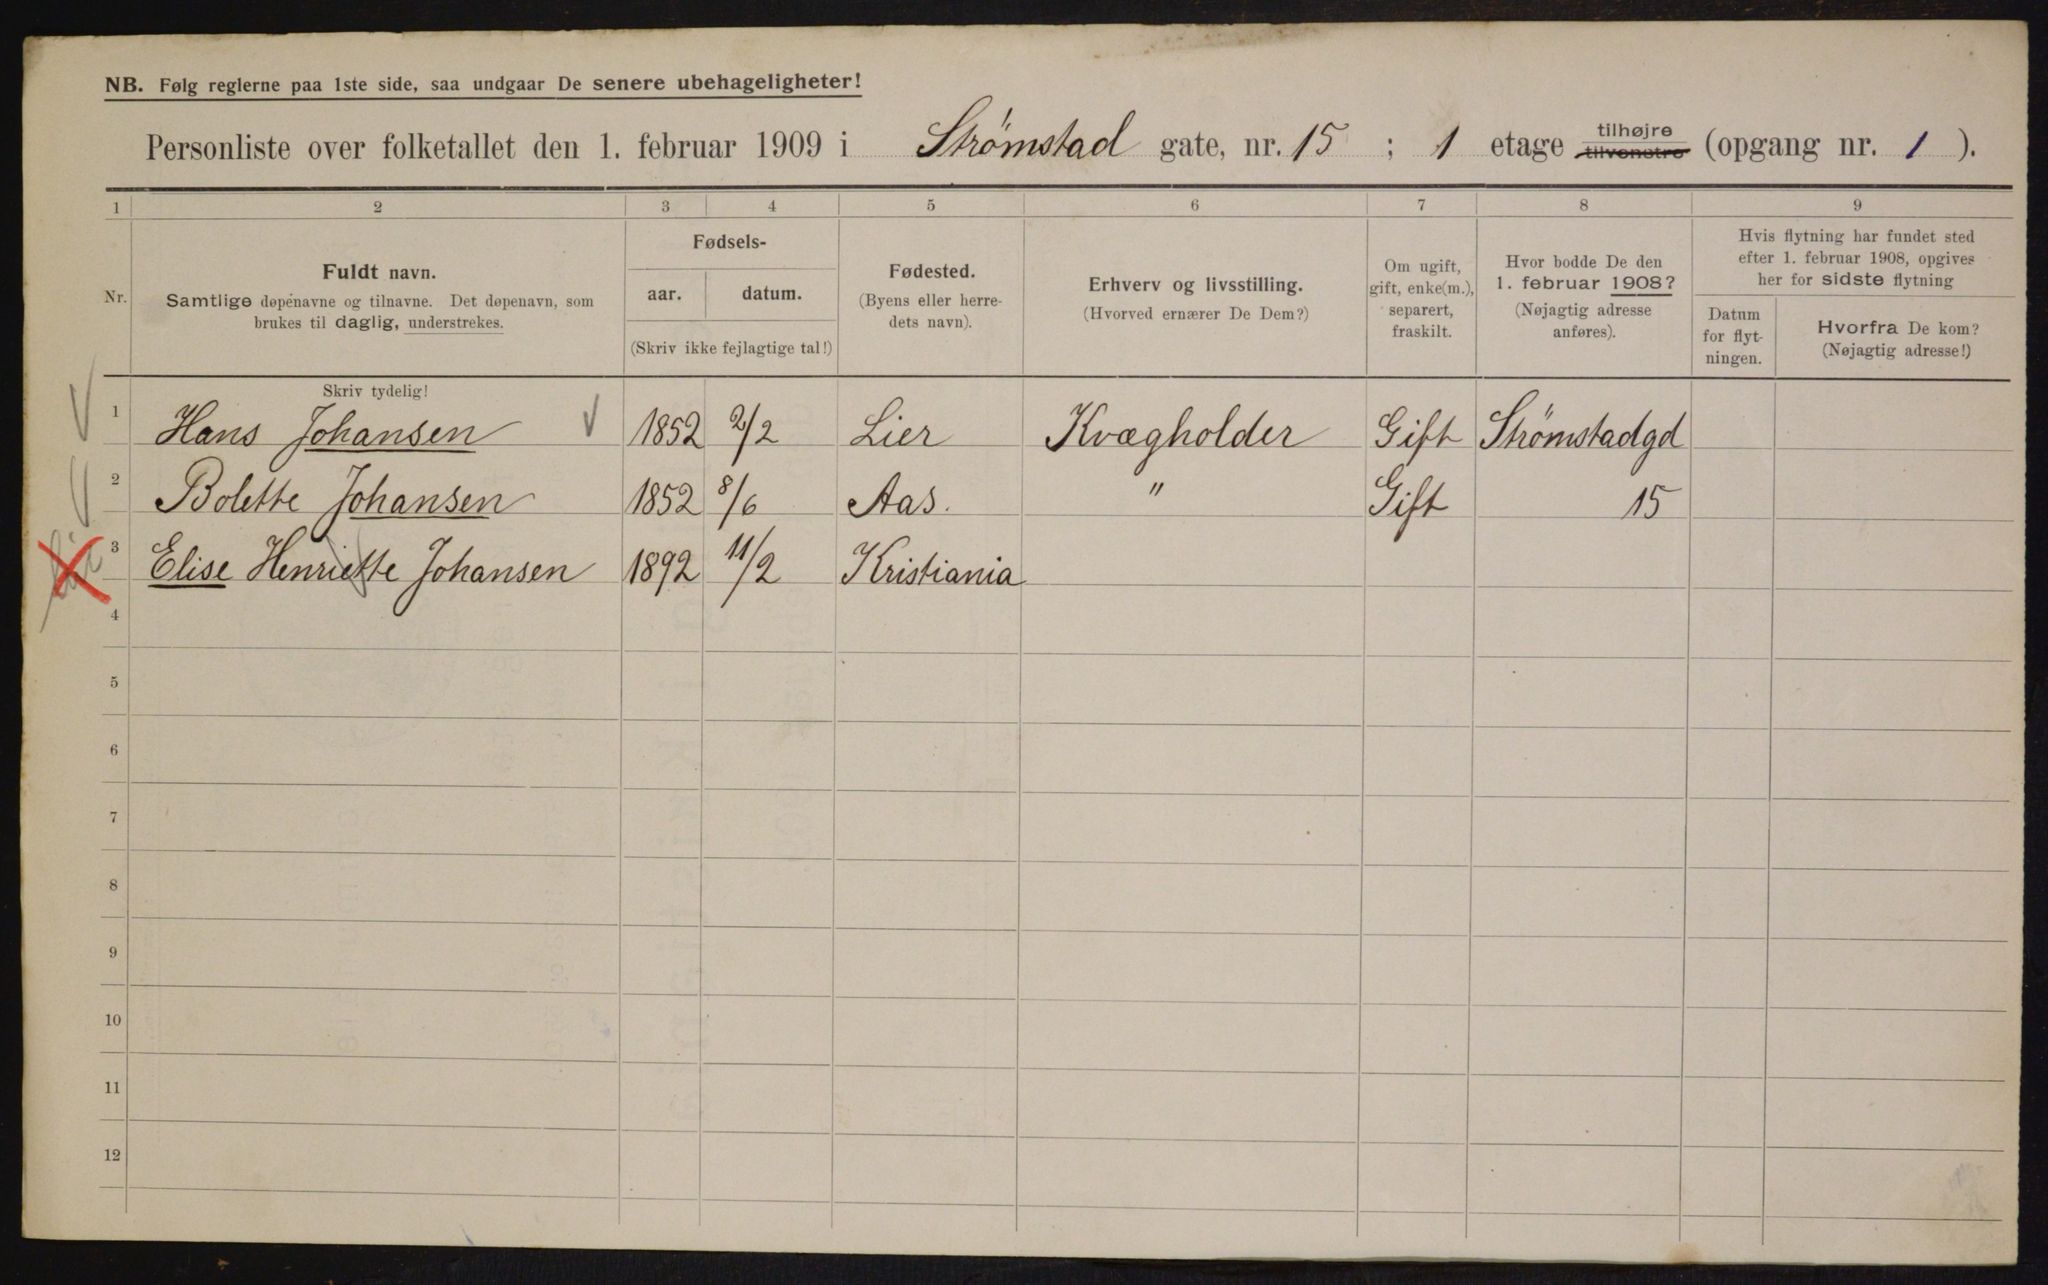 NB. Følg reglerne paa 1ste side, saa undgaar De senere ubehageligheter!
Personliste over folketallet den 1. februar 1909 i Strømstad gate, nr. 15 ; 1 etage tilhøjre tilvenstre (opgang nr. 1 ).
1 2 3 4 5 6 7 8 9
Nr.
Fuldt navn.
Samtlige døpenavne og tilnavne. Det døpenavn, som
brukes til daglig, understrekes.
Fødsels-
aar. datum.
(Skriv ikke fejlagtige tal!)
Fødested.
(Byens eller herre-
dets navn).
Erhverv og livsstilling.
(Hvorved ernærer De Dem?)
Om ugift,
gift, enke(m.),
separert,
fraskilt.
Hvor bodde De den
1. februar 1908?
(Nøjagtig adresse
anføres).
Hvis flytning har fundet sted
efter 1. februar 1908, opgives
her for sidste flytning
Datum
for flyt-
ningen.
Hvorfra De kom?
(Nøjagtig adresse!)
Skriv tydelig!
1 Hans Johansen 1852 2/2 Lier Kvægholder Gift Strømstadgd
2 Bolette Johansen 1852 8/6 Aas. " Gift 15
3 Elise Henriette Johansen 1892 11/2 Kristiania
4
5
6
7
8
9
10
11
12